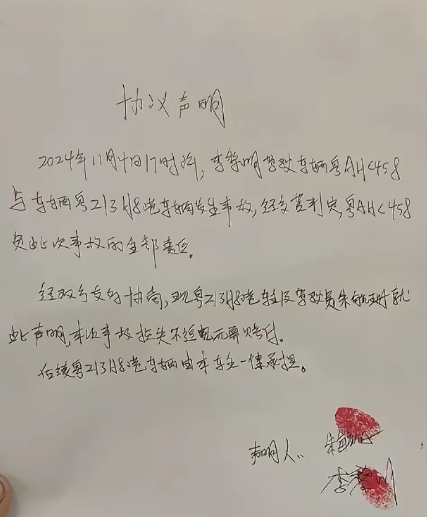 协议声明
2024年11月4日17时许,李黎明驾驶车辆粤AH<458
与车辆粤Z13H8港车辆发生事故,经交警判定,粤AH<458
负此次事故的全部责任。
经双方友好协商,现粤Z13H8港车主及驾驶员朱就
此声明,本次事故损失不追究无需赔付。
后续粤Z13H8港车辆由本车主一律承担。
声明人:
李黎明